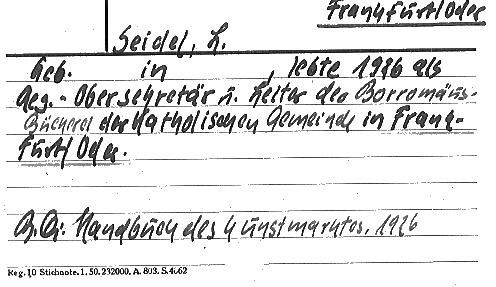 Frankfurt/Oder
Seidel, L.
Geb. in , lebte 1926 als
Reg.-Obersekretär u. Leiter der Borromäus-
Bücherei der Katholischen Gemeinde in Frank-
furt/Oder.
B.Qu: Handbuch des Kunstmarktes. 1926
Reg. 10 Stichnote. 1. 50. 232000. A. 803. S. 4662